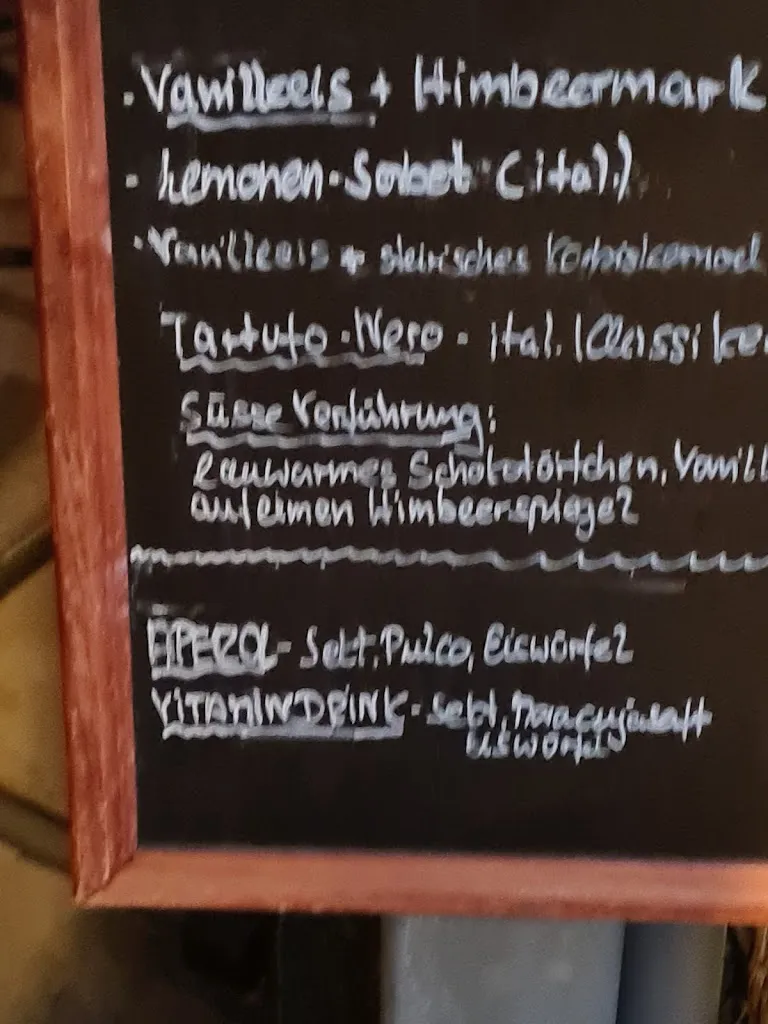 · Vanilleeis + Himbeermark
- Lemonen-Sorbet (ital.)
· Vanilleeis + steirisches
Tartufo-Nero - ital. Klassike
Süsse Verführung:
Lauwarmes Schokotörtchen, Vanill
auf einen Himbeerspiegel
APEROL- Sekt, Pulco, Eiswürfel
VITAMINDRINK- Sekt, Maracujasaft
Eiswürfel